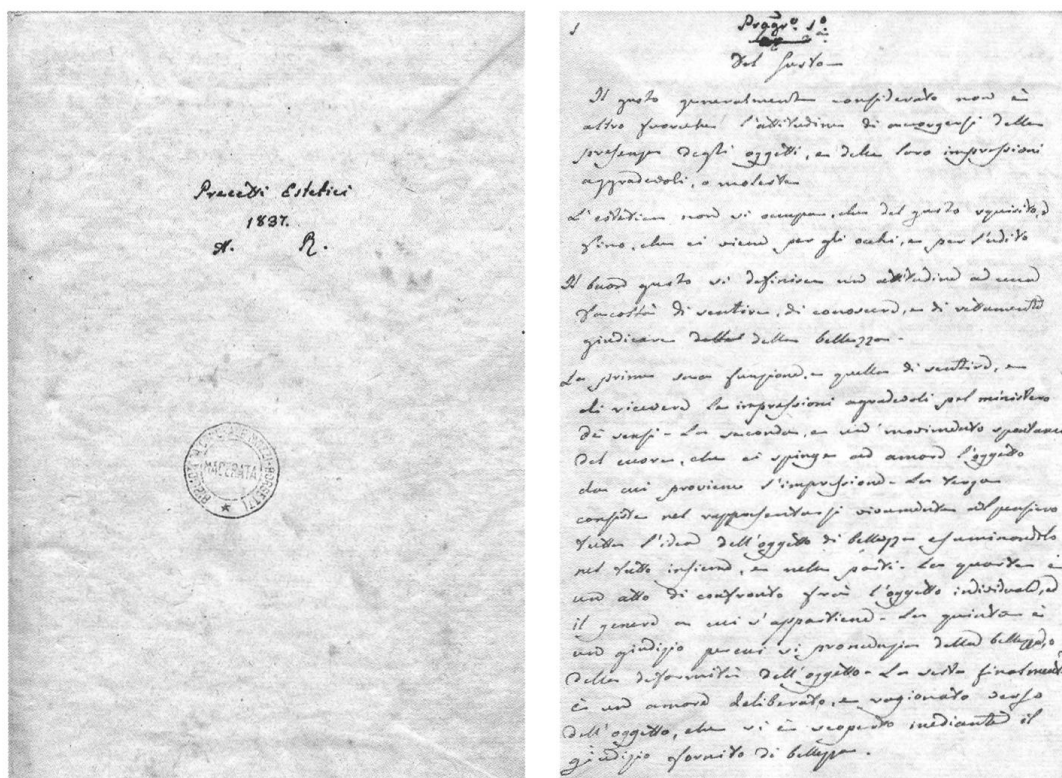 Precetti Estetici
1837.
A. R.
BIBLIOTECA COMUNALE MOZZI-BORGETTI
MACERATA
1
Pragrº. 1º.
Del Gusto
Il gusto generalmente considerato non è
altro fuorchè l'attitudine di accorgersi della
presenza degli oggetti, e delle loro impressioni
aggradevoli, o moleste
L'estetica non si occupa, che del gusto squisito, e
fino, che ci viene per gli occhi, e per l'udito
Il buon gusto si definisce un attitudine ad una
facoltà di sentire, di conoscere, e di rettamente
giudicare della bellezza.
La prima sua funzione, e quella di sentire, e
di ricevere le impressioni agradevoli pel ministero
dè sensi - La seconda, e un movimento spontaneo
del cuore, che ci spinge ad amare l'oggetto
da cui proviene l'impressione - La terza
consiste nel rappresentarsi vivamente al pensiero
tutta l'idea dell'oggetto di bellezza esaminandolo
nel tutto insieme, e nelle parti - La quarta e
un atto di confronto frà l'oggetto individuale, e
il genere a cui s'appartiene - La quinta è
un giudizio per cui si pronunzia della bellezza, o
della deformità dell'oggetto - La sesta finalmente
è un amore deliberato, e ragionato verso
dell'oggetto, che si è scoperto mediante il
giudizio fornito di bellezza.